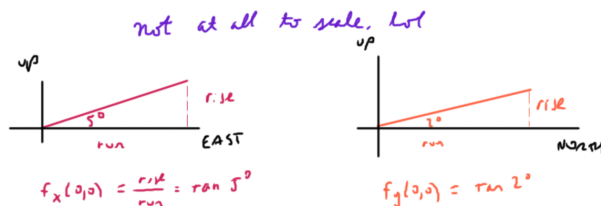 not at all to scale. lol
UP
5°
rise
run
EAST
f_x(0,0) = rise/run = tan 5°
UP
2°
rise
run
NORTH
f_y(0,0) = tan 2°